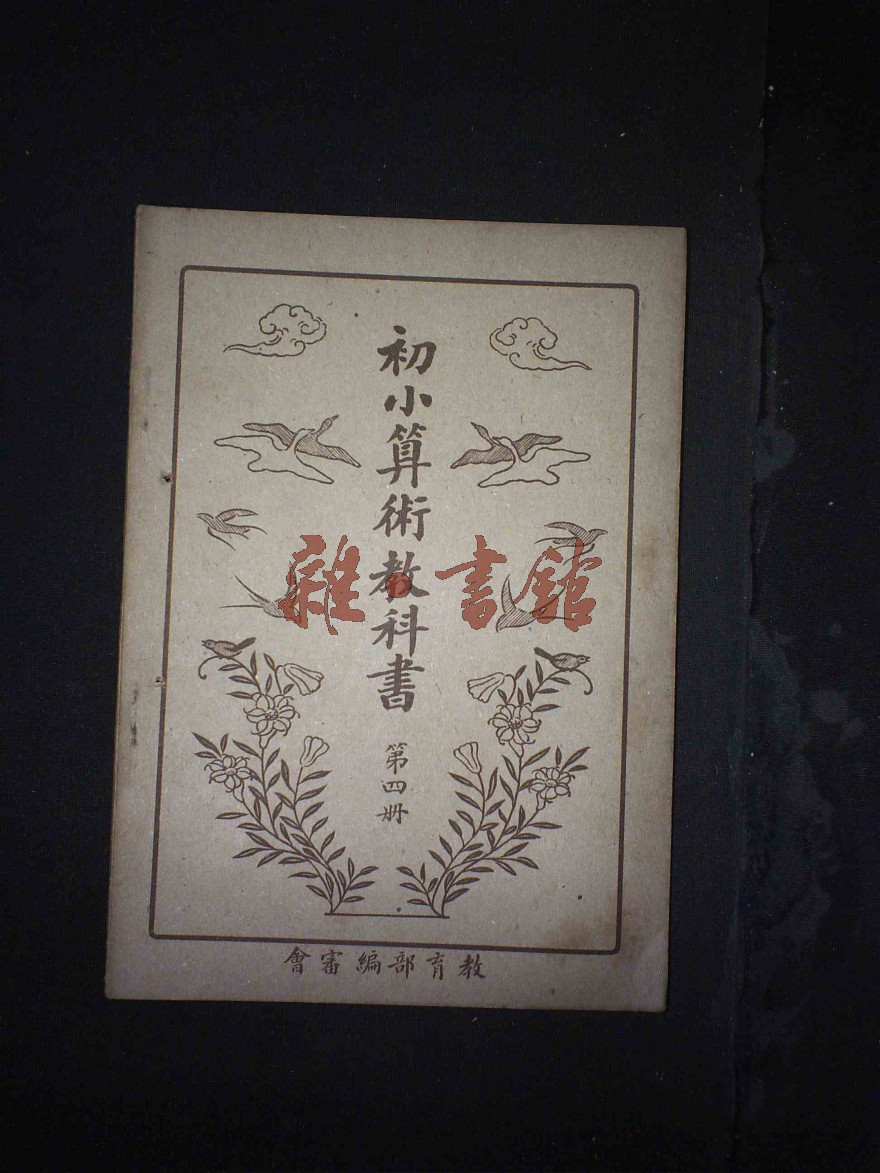 初小算術教科書
第四册
教育部編審會
雜·書館